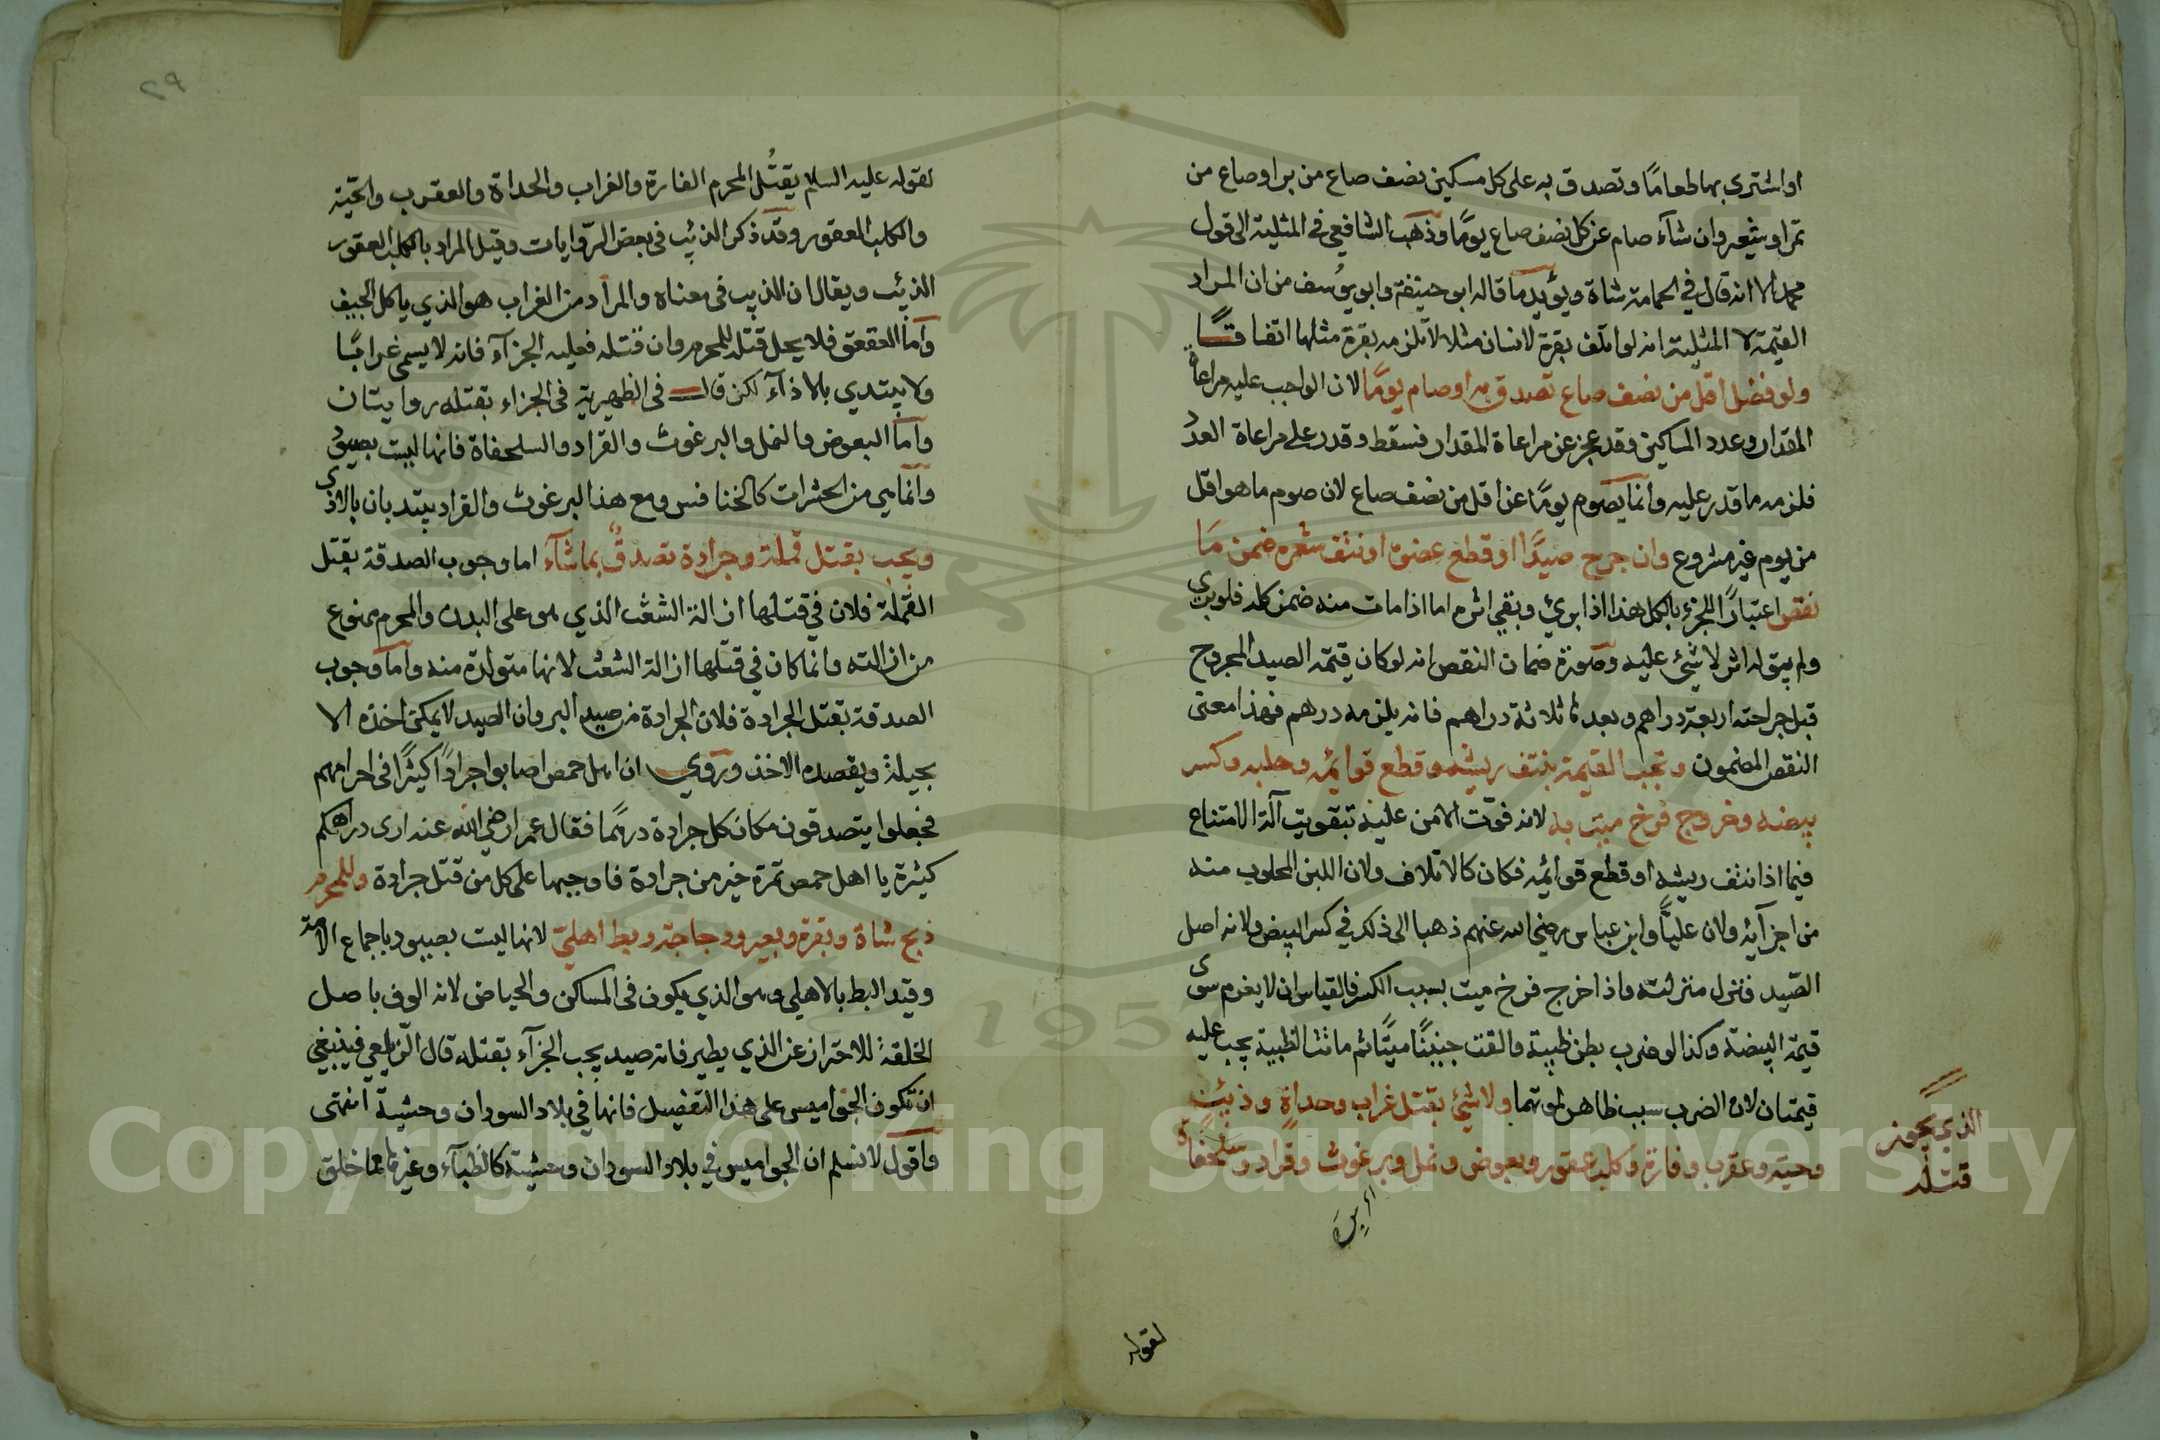 او اشترى بها طعاما وتصدق به على كل مسكين نصف صاع من بر او صاع من
تمر او شعير وان شآء صام عن كل نصف صاع يومًا وذهب الشافعي في المثلية الى قول
محمد الا انه قال في الحمامة شاة ويؤيد ما قاله ابو حنيفة وابو يوسف من ان المراد
القيمة لا المثلية انه لو اتلف بقرة لانسان مثلا لا تلزمه بقرة مثلها اتفاقًا
ولو فضل اقل من نصف صاع تصدق به او صام يومًا لان الواجب عليه مراعاة
المقدار وعدد المساكين وقد عجز عن مراعاة المقدار فسقط وقدر على مراعاة العدد
فلزمه ما قدر عليه وانما يصوم يومًا عن اقل من نصف صاع لان صوم ما هو اقل
من يوم غير مشروع وان جرح صيدًا او قطع عضوه او نتف شعره ضمن مَا
نقص اعتبارًا للجزء بالكل هذا اذا برئ وبقي اثره اما اذا مات منه ضمن كله فلو برئ
ولم يبق له اثر لا شئ عليه وصورة ضمان النقص انه لو كان قيمة الصيد المجروح
قبل جراحته اربعة دراهم وبعدها ثلاثة دراهم فانه يلزمه درهم فهذا معنى
النقص المضمون وتجب القيمة بنتف ريشه وقطع قوائمه وحلبه وكسر
بيضه وخروج فرخ ميت به لانه فوّت الامن عليه بتفويت آلة الامتناع
فيما اذا نتف ريشه او قطع قوائمه فكان كالاتلاف ولان اللبن المحلوب منه
من اجزآئه ولان عليًا وابن عباس رضي الله عنهم ذهبا الى ذلك في كسر البيض ولانه اصل
الصّيد فنزل منزلته واذا خرج فرخ ميت بسبب الكسر فالقياس ان لا يغرم سوى
قيمة البيضة وكذا لو ضرب بطن ظبية والقت جنينًا ميتًا ثم ماتت الظبية يجب عليه
قيمتان لان الضرب سبب ظاهر لموتهما ولا شئ بقتل غراب وحداة وذئب
وحية وعقرب وفارة وكلب عقور وبعوض ونمل وبرغوث وقراد وسلحفاة
الذي يجوز
قتله
لقوله
٢٩
لقوله عليه السلام يقتُل المحرم الفارة والغراب والحداة والعقرب والحيّة
والكلب العقور وقد ذكر الذئب في بعض الرّوايات وقيل المراد بالكلب العقور
الذئب ويقال ان الذيب في معناه والمراد من الغراب هو الذي ياكل الجيف
واما العقعق فلا يحل قتله للمحرم وان قتله فعليه الجزآء فانه لا يسمى غرابًا
ولا يبتدي بالاذآء لكن قال في الظهيرية في الجزاء بقتله روايتان
واما البعوض والنمل والبرغوث والقراد والسلحفاة فانها ليست بصيود
وانما هي من الحشرات كالخنافس ومع هذا البرغوث والقراد يبتديان بالاذى
ويجب بقتل قملة وجرادة تصدقٌ بما شآء اما وجوب الصدقة بقتل
القملة فلان في قتلها ازالة الشعث الذي هو على البدن والمحرم ممنوع
من ازالته وانما كان في قتلها ازالة الشعث لانها متولدة منه واما وجوب
الصدقة بقتل الجرادة فلان الجرادة من صيد البر وان الصيد لا يمكن اخذه الا
بحيلة ويقصده الاخذ وروي ان اهل حمص اصابوا جرادًا كثيرًا في احرامهم
فجعلوا يتصدقون مكان كل جرادة درهمًا فقال عمر رضي الله عنه ارى دراهمكم
كثيرة يا اهل حمص تمرة خير من جرادة فاوجبها على كل من قتل جرادة وللمحرم
ذبح شاة وبقرة وبعير ودجاجة وبط اهليّ لانها ليست بصيود باجماع الامة
وقيد البط بالاهلي وهو الذي يكون في المساكن والحياض لانه الوف باصل
الخلقة للاحتراز عن الذي يطير فانه صيد يجب الجزآء بقتله قال الزيلعي فينبغي
ان تكون الجواميس على هذا التفصيل فانها في بلاد السودان وحشية انتهى
واقول لا نسلم ان الجواميس في بلاد السودان وحشية كالظبآء وغيرها مما خلق
Copyright © King Saud University
1957